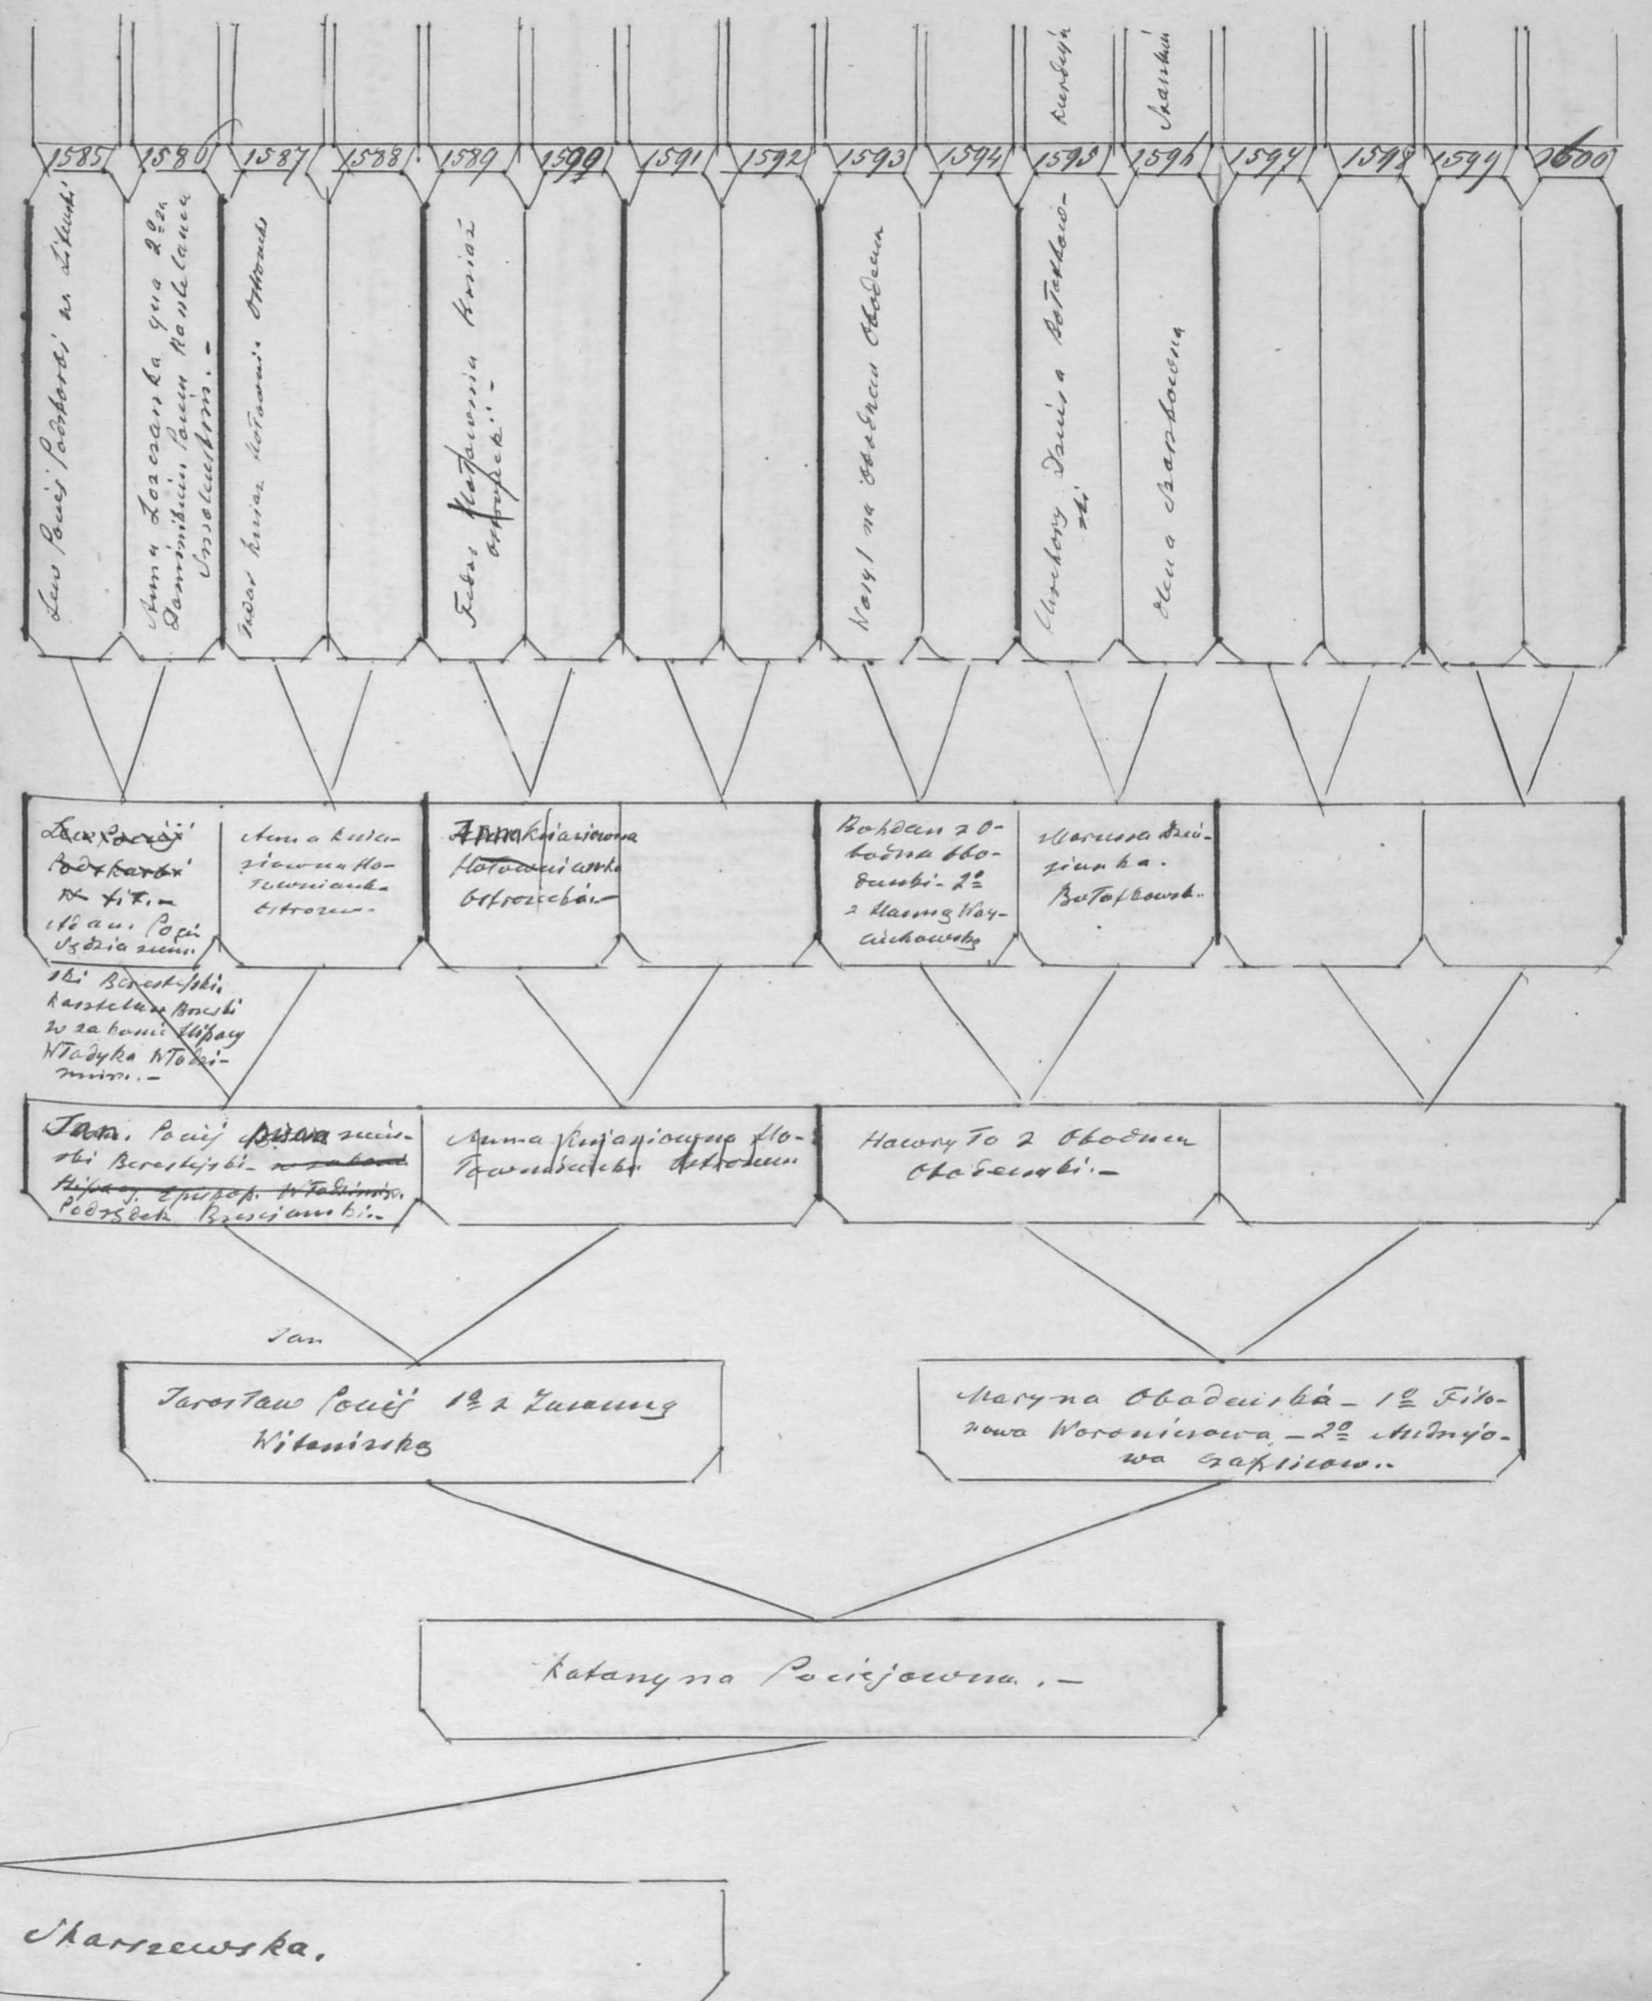 1585 1586 1587 1588 1589 1590 1591 1592 1593 1594 1595 1596 1597 1598 1599 1600
Lew Pociej Podskarbi w. Litewski
Anna Łozczanka qua 2º za
Dominikiem Pacem Kasztelanem
Smoleńskim.-
kniaź Hołownia Ostrożecki
Fedor Hołownia Kniaź
Ostrożecki.-
Wasyl na Obodnem Obodenin
Dzius a Bołakłow-
ski
Olena Szaszkowna
Lew Pociej
Podskarbi
w. Lit.-
Adam Pociej
Sędzia ziem-
ski Berestejski.
Kasztelan Brzeski
w zakonie Hipacy
Władyka Włodzi-
mirs.-
Anna Knia-
ziowna Ho-
łownianka
Ostrożec.
Anna Kniaziowna
Hołownianka
Ostrożecka.-
Bohdan z O-
bodna Obo-
denski - 2º
z Hanną Woy-
ciechowską
Marussa Dziu-
sianka.
Jan. Pociej ziem-
ski Berestejski- w zakonie
Hipacy. Episkop. Włodzimirs.
Podsędek Brzescianski..
Anna Kniaziowna Ho-
łownianka Ostrożecka
Hawryło z Obodnem
Obodenski.-
Jan
Jarosław Pociej 1º z Zuzanną
Witanizską
Maryna Obodenska - 1º Filo-
nowa Woroniczowa - 2º Andryjo-
wa Czaplicow..
Katarzyna Pociejowna. -
Skarszewska.